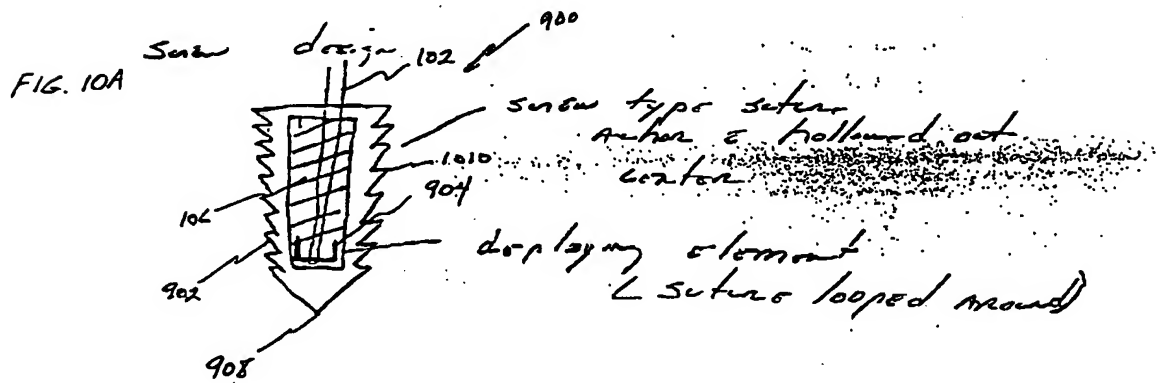 900
Screw design
102
FIG. 10A
screw type suture
Anchor c̄ hollowed out
center
1010
904
106
deploying element
( suture looped around)
902
908